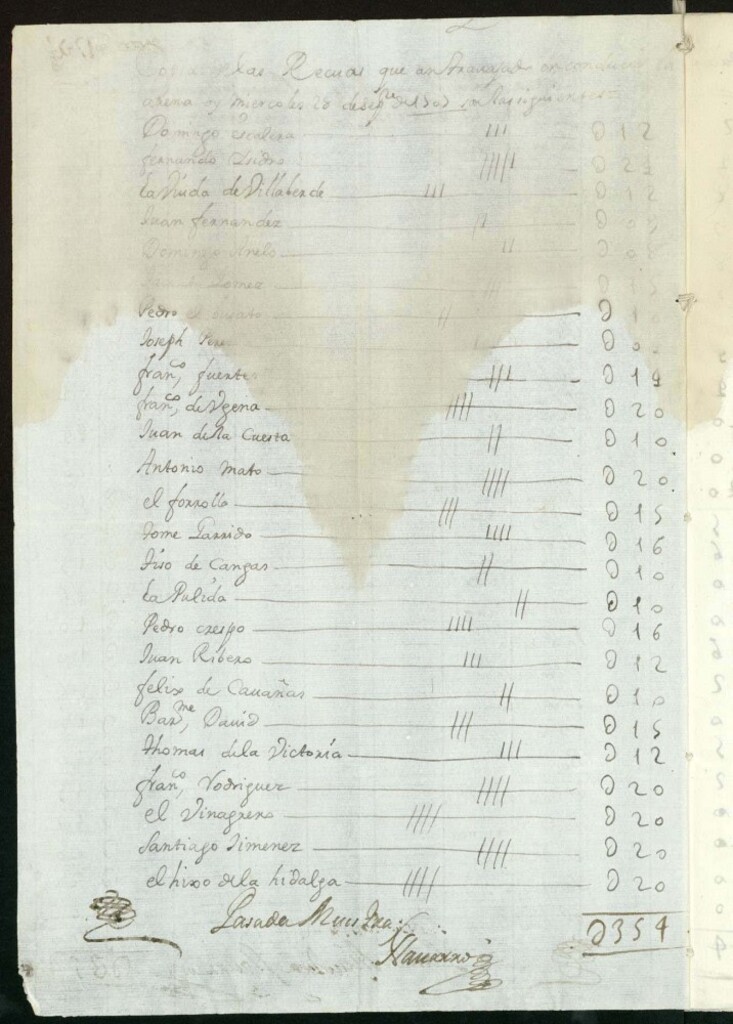 las Recuas que an travajado en conducir
arena oy miercoles 28 de sep.re de
Domingo escalera /// D 12
fernando Isidro ///// D 2
la Viuda de Villaberde /// D 12
Juan fernandez // D 0
Domingo // D 0
Gomez ///
Pedro el // D 1
Joseph D 0
fran.co fuente /// D 19
fran.co de Ugena //// D 20
Juan de la Cuesta // D 10
Antonio Mato //// D 20
el forrolla /// D 15
Tome Garrido //// D 16
Tirso de Cangas // D 10
la Pulida // D 10
Pedro crespo //// D 16
Juan Ribero /// D 12
felix de Cavañas // D 10
Bar.me David /// D 15
thomas de la Victoria /// D 12
fran.co Rodriguez //// D 20
el Vinagrero //// D 20
Santiago Ximenez //// D 20
el hixo de la hidalga //// D 20
Pasada Muestra D354
Navarro